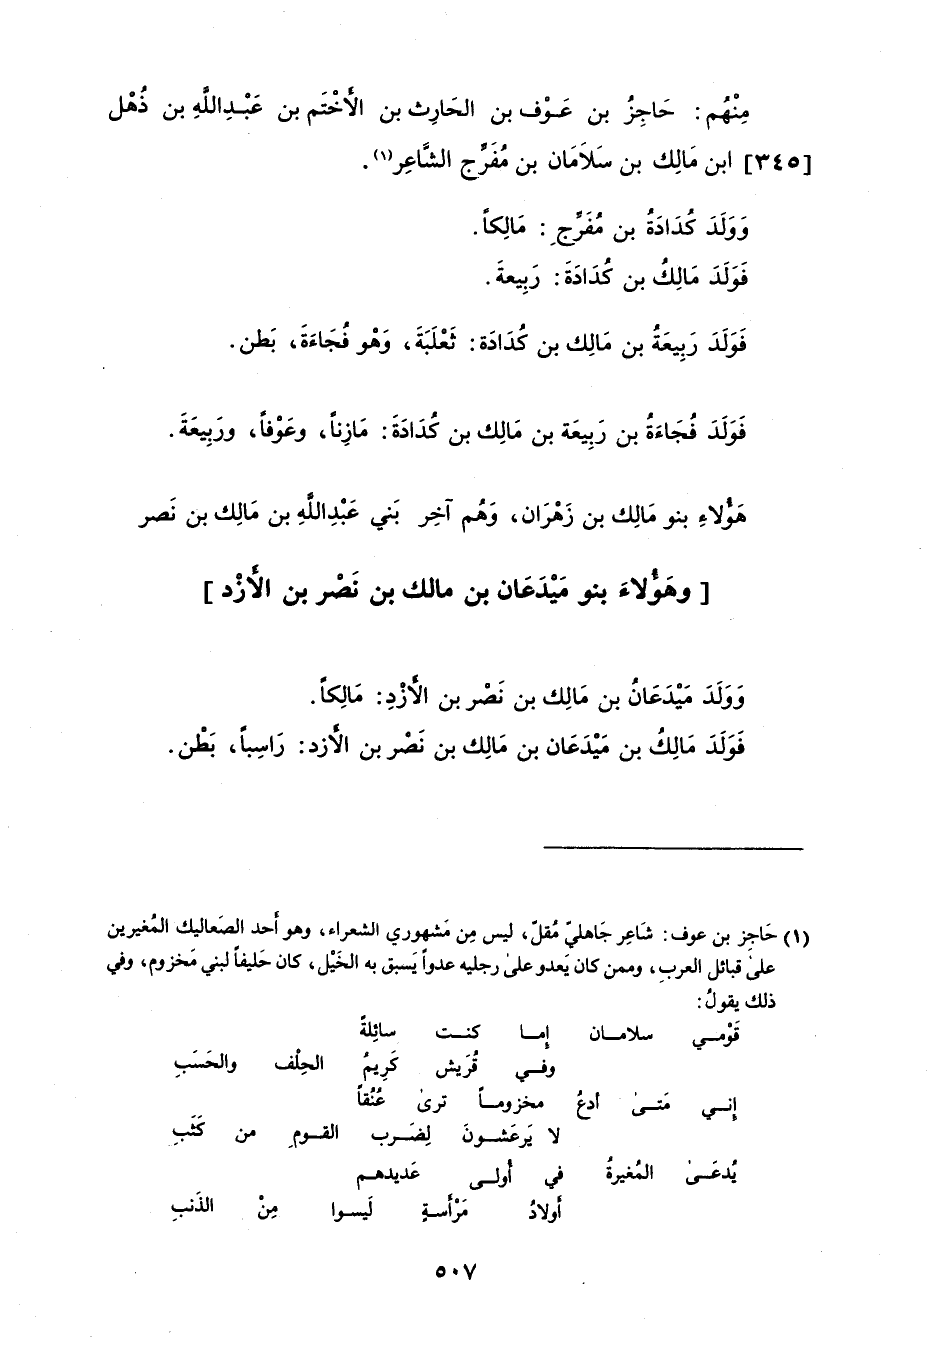 مِنْهُم: حَاجِزُ بن عَـوْف بن الحَارِث بن الأَخْتَم بن عَبْـدِاللَّهِ بن ذُهْل
[٣٤٥] ابن مَالِك بن سَلَامَان بن مُفَرِّج الشَّاعِر(١).
وَوَلَدَ كُدَادَةُ بن مُفَرِّجٍ: مَالِكاً.
فَوَلَدَ مَالِكُ بن كُدَادَةَ: رَبِيعةَ.
فَوَلَدَ رَبِيعَةُ بن مَالِك بن كُدَادَة: ثَعْلَبَةَ، وَهْو فُجَاءَةَ، بَطن.
فَوَلَدَ فُجَاءَةُ بن رَبِيعَة بن مَالِك بن كُدَادَةَ: مَازِناً، وعَوْفاً، ورَبِيعَةَ.
هَؤُلاءِ بنو مَالِك بن زَهْرَان، وَهُم آخِر بَني عَبْدِاللَّهِ بن مَالِك بن نَصر
[ وهَؤُلاءَ بنو مَيْدَعَان بن مالك بن نَصْر بن الأَزْد ]
وَوَلَدَ مَيْدَعَانُ بن مَالِك بن نَصْر بن الأَزْدِ: مَالِكاً.
فَوَلَدَ مَالِكُ بن مَيْدَعَان بن مَالِك بن نَصْر بن الأَزد: رَاسِباً، بَطْن.
(١) حَاجز بن عوف: شَاعِر جَاهليّ مُقلّ، ليس مِن مَشهوري الشعراء، وهو أَحد الصَعاليك المُغيرين
علىٰ قبائل العربِ، وممن كان يَعدو علىٰ رجليه عدواً يَسبق به الخَيْل، كان حَليفاً لبني مَخزوم، وفي
ذلك يقولُ:
قَوْمـي سلامـان إِمـا كنـت سائِلةً
وفـي قُرَيش كَرِيمُ الحِلْف والحَسَبِ
إِنـي مَتـىٰ أدعُ مخزومـاً ترىٰ عُنُقاً
لا يَرعَشـونَ لِضـرب القـومِ من كَثَبِ
يُدعَـىٰ المُغيرةُ في أُولـى عَديدهـم
أَولادُ مَرْأَسةٍ لَيسوا مِنْ الذَنبِ
٥٠٧